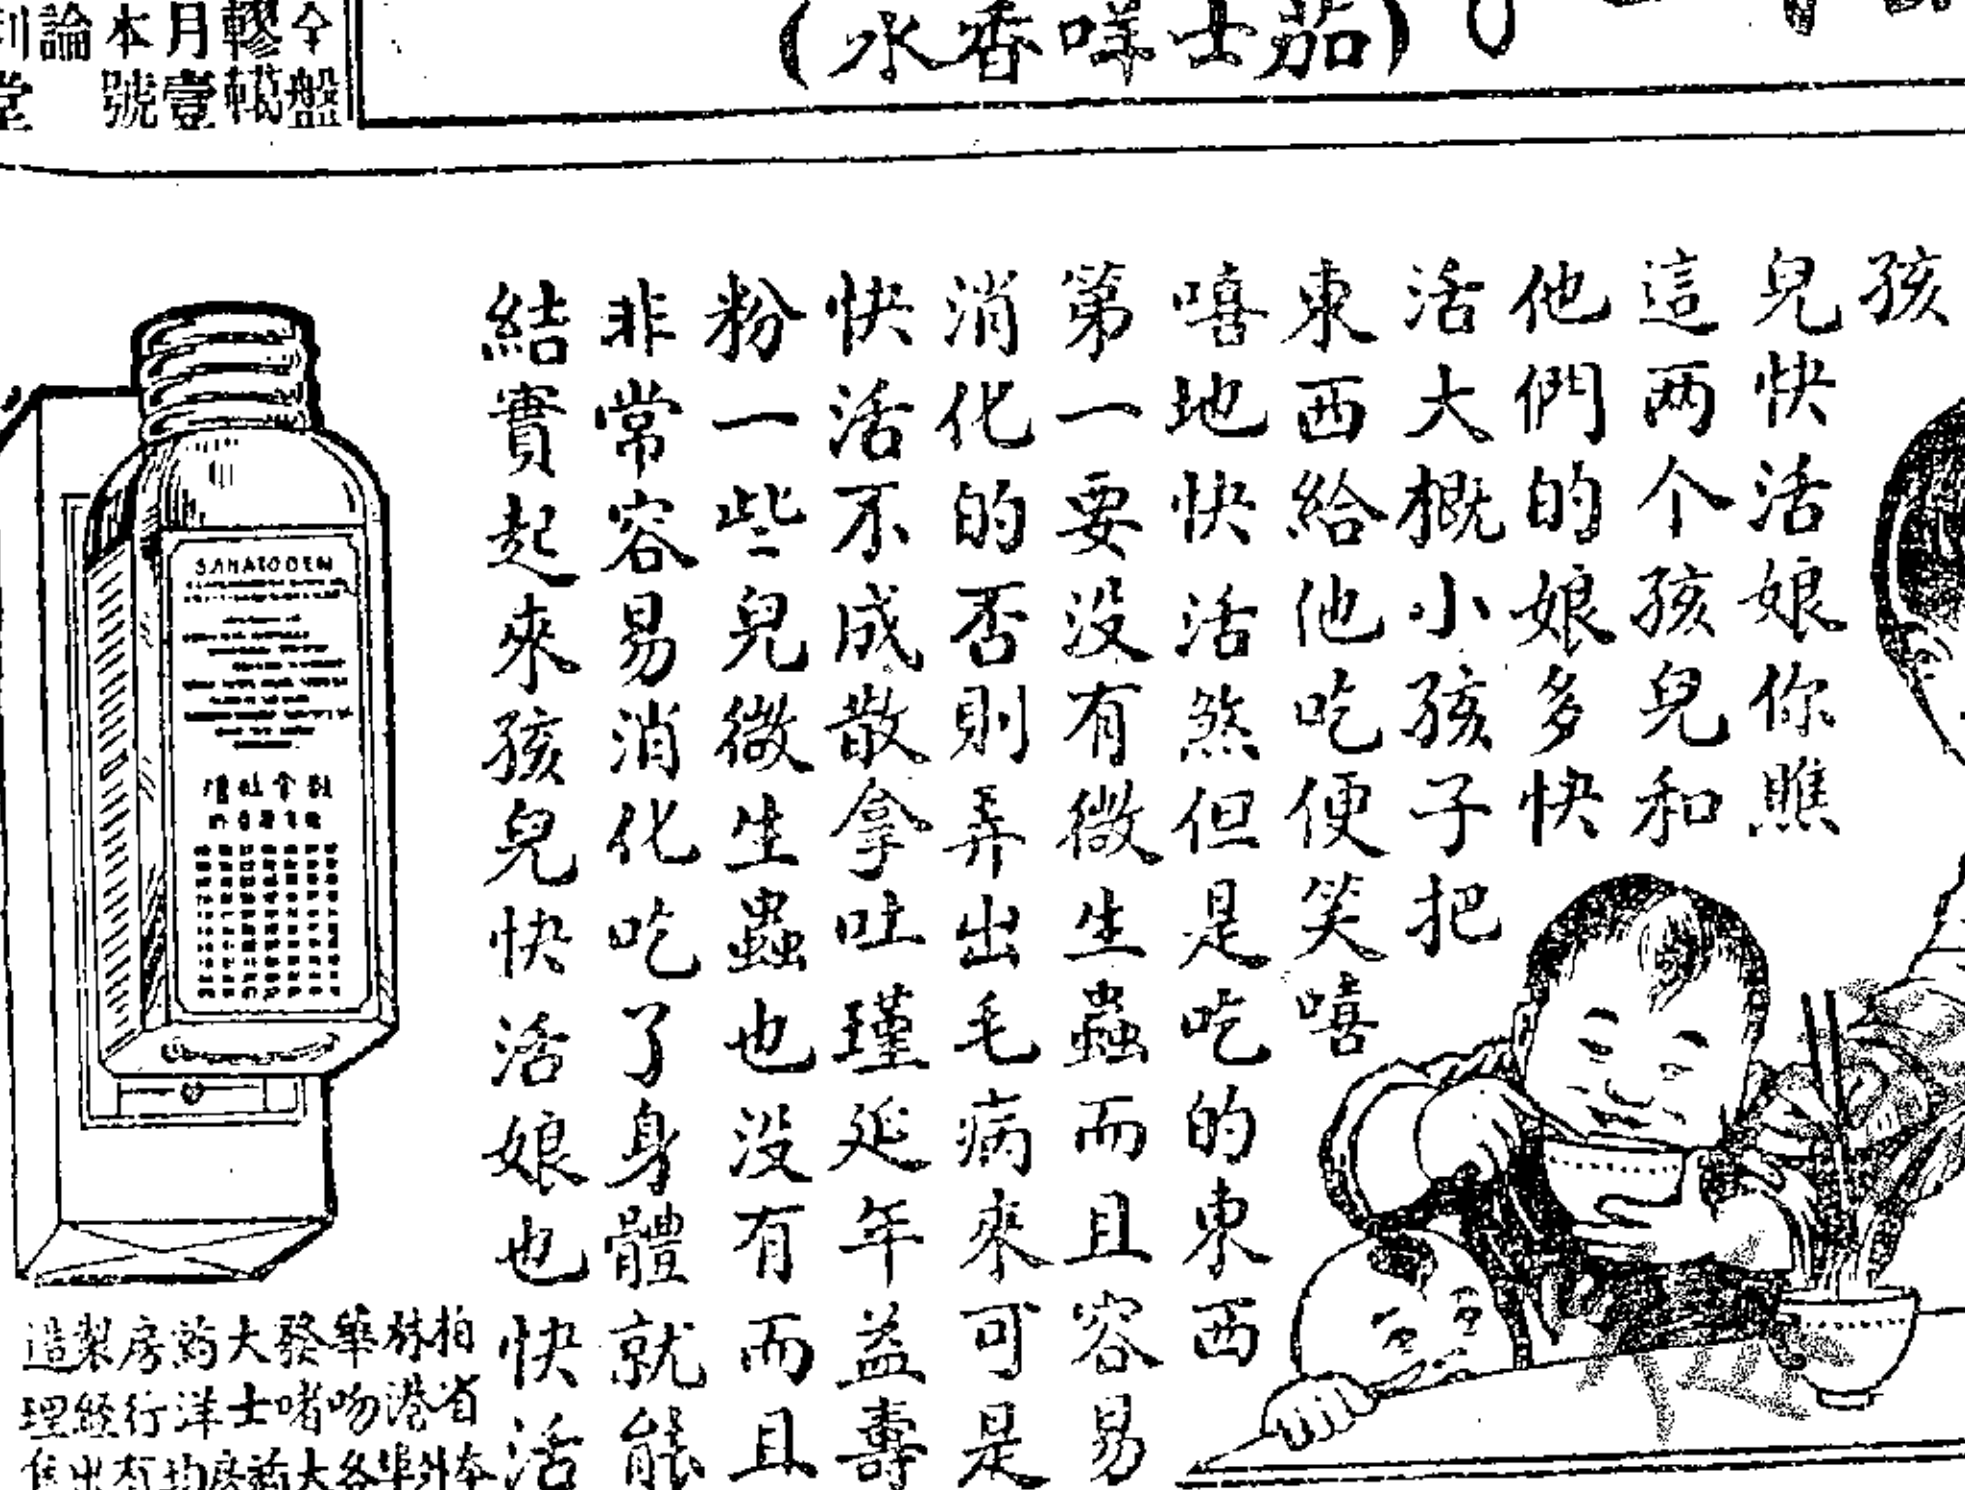 (水香咩士茄)
令盤
轇轕
月壹
本號
論
孩
兒快活娘你瞧
這两个孩兒和
他們的娘多快
活大概小孩子把
東西給他吃便笑嘻
嘻地快活煞但是吃的東西
第一要没有微生蟲而且容易
消化的否則弄出毛病來可是
快活不成散拿吐瑾延年益壽
粉一些兒微生蟲也没有而且
非常容易消化吃了身體就能
結實起來孩兒快活娘也快活
SANATOGEN
造製房葯大發華林柏
理經行洋士啫吻港省